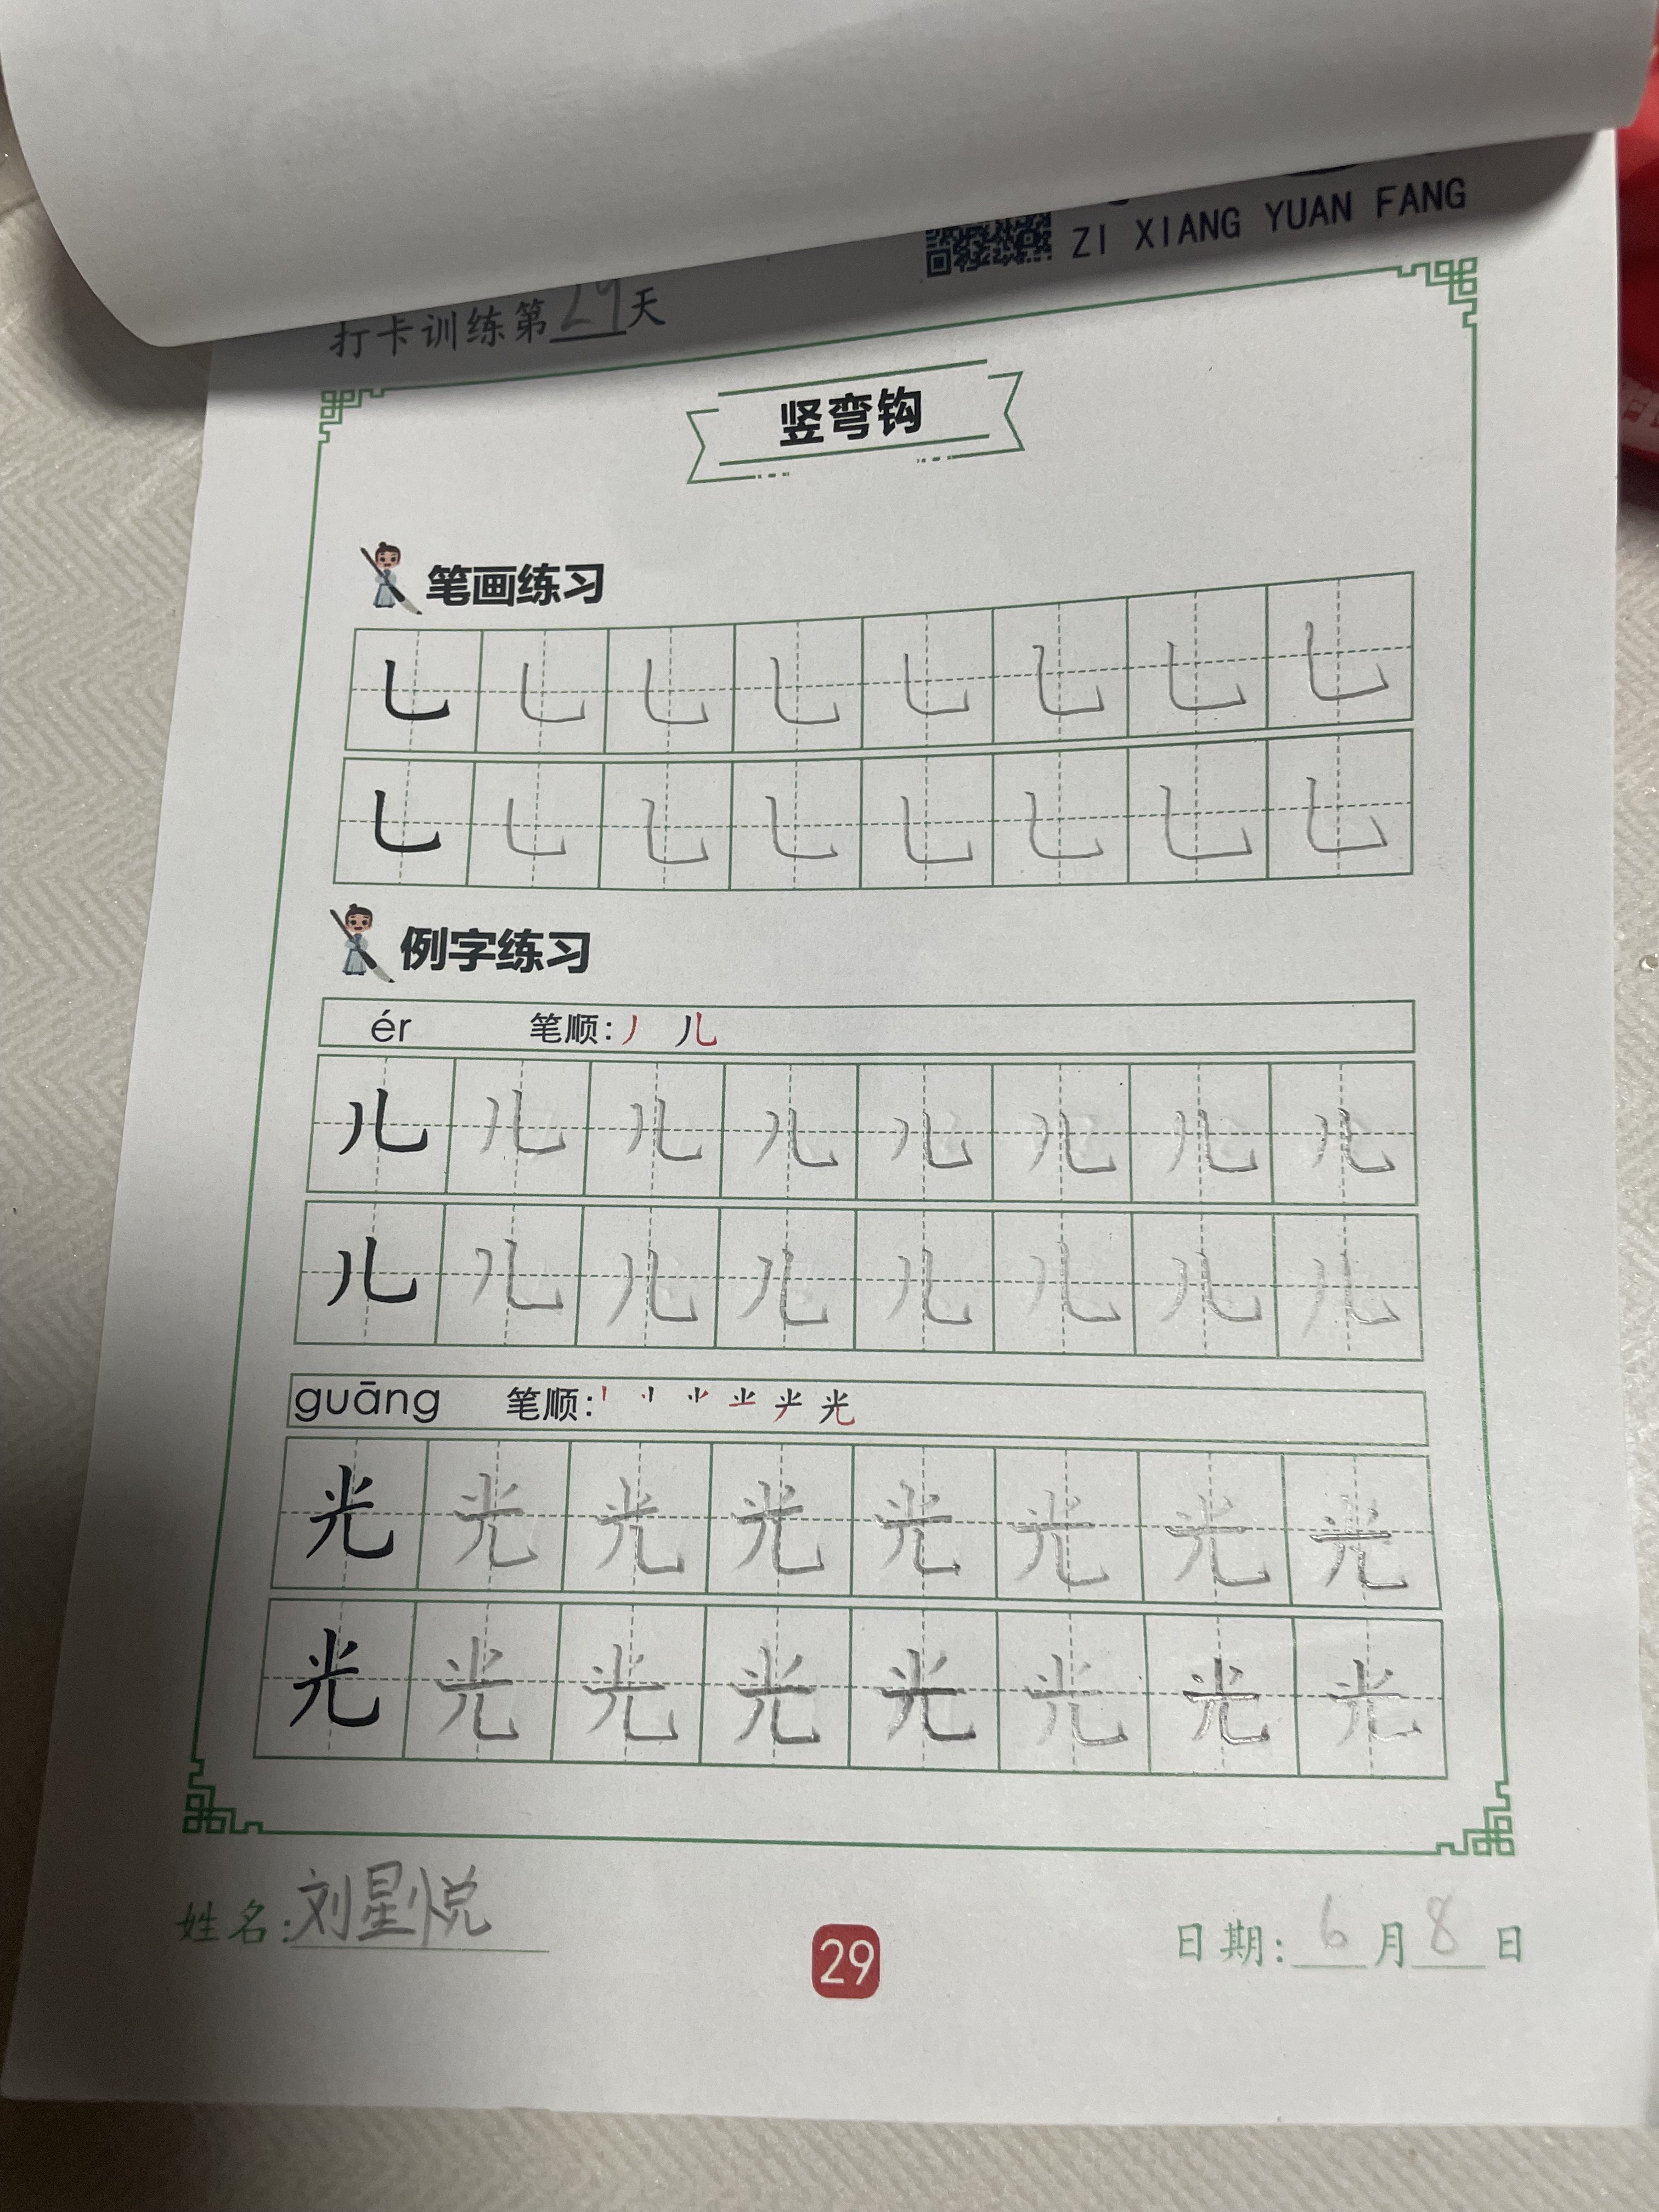 ZI XIANG YUAN FANG
打卡训练第29天
竖弯钩
笔画练习
㇟ ㇟ ㇟ ㇟ ㇟ ㇟ ㇟ ㇟
㇟ ㇟ ㇟ ㇟ ㇟ ㇟ ㇟ ㇟
例字练习
ér 笔顺: 丿 儿
儿 儿 儿 儿 儿 儿 儿 儿
儿 儿 儿 儿 儿 儿 儿 儿
guāng 笔顺: 光
光 光 光 光 光 光 光 光
光 光 光 光 光 光 光 光
姓名: 刘星悦
29
日期: 6月8日